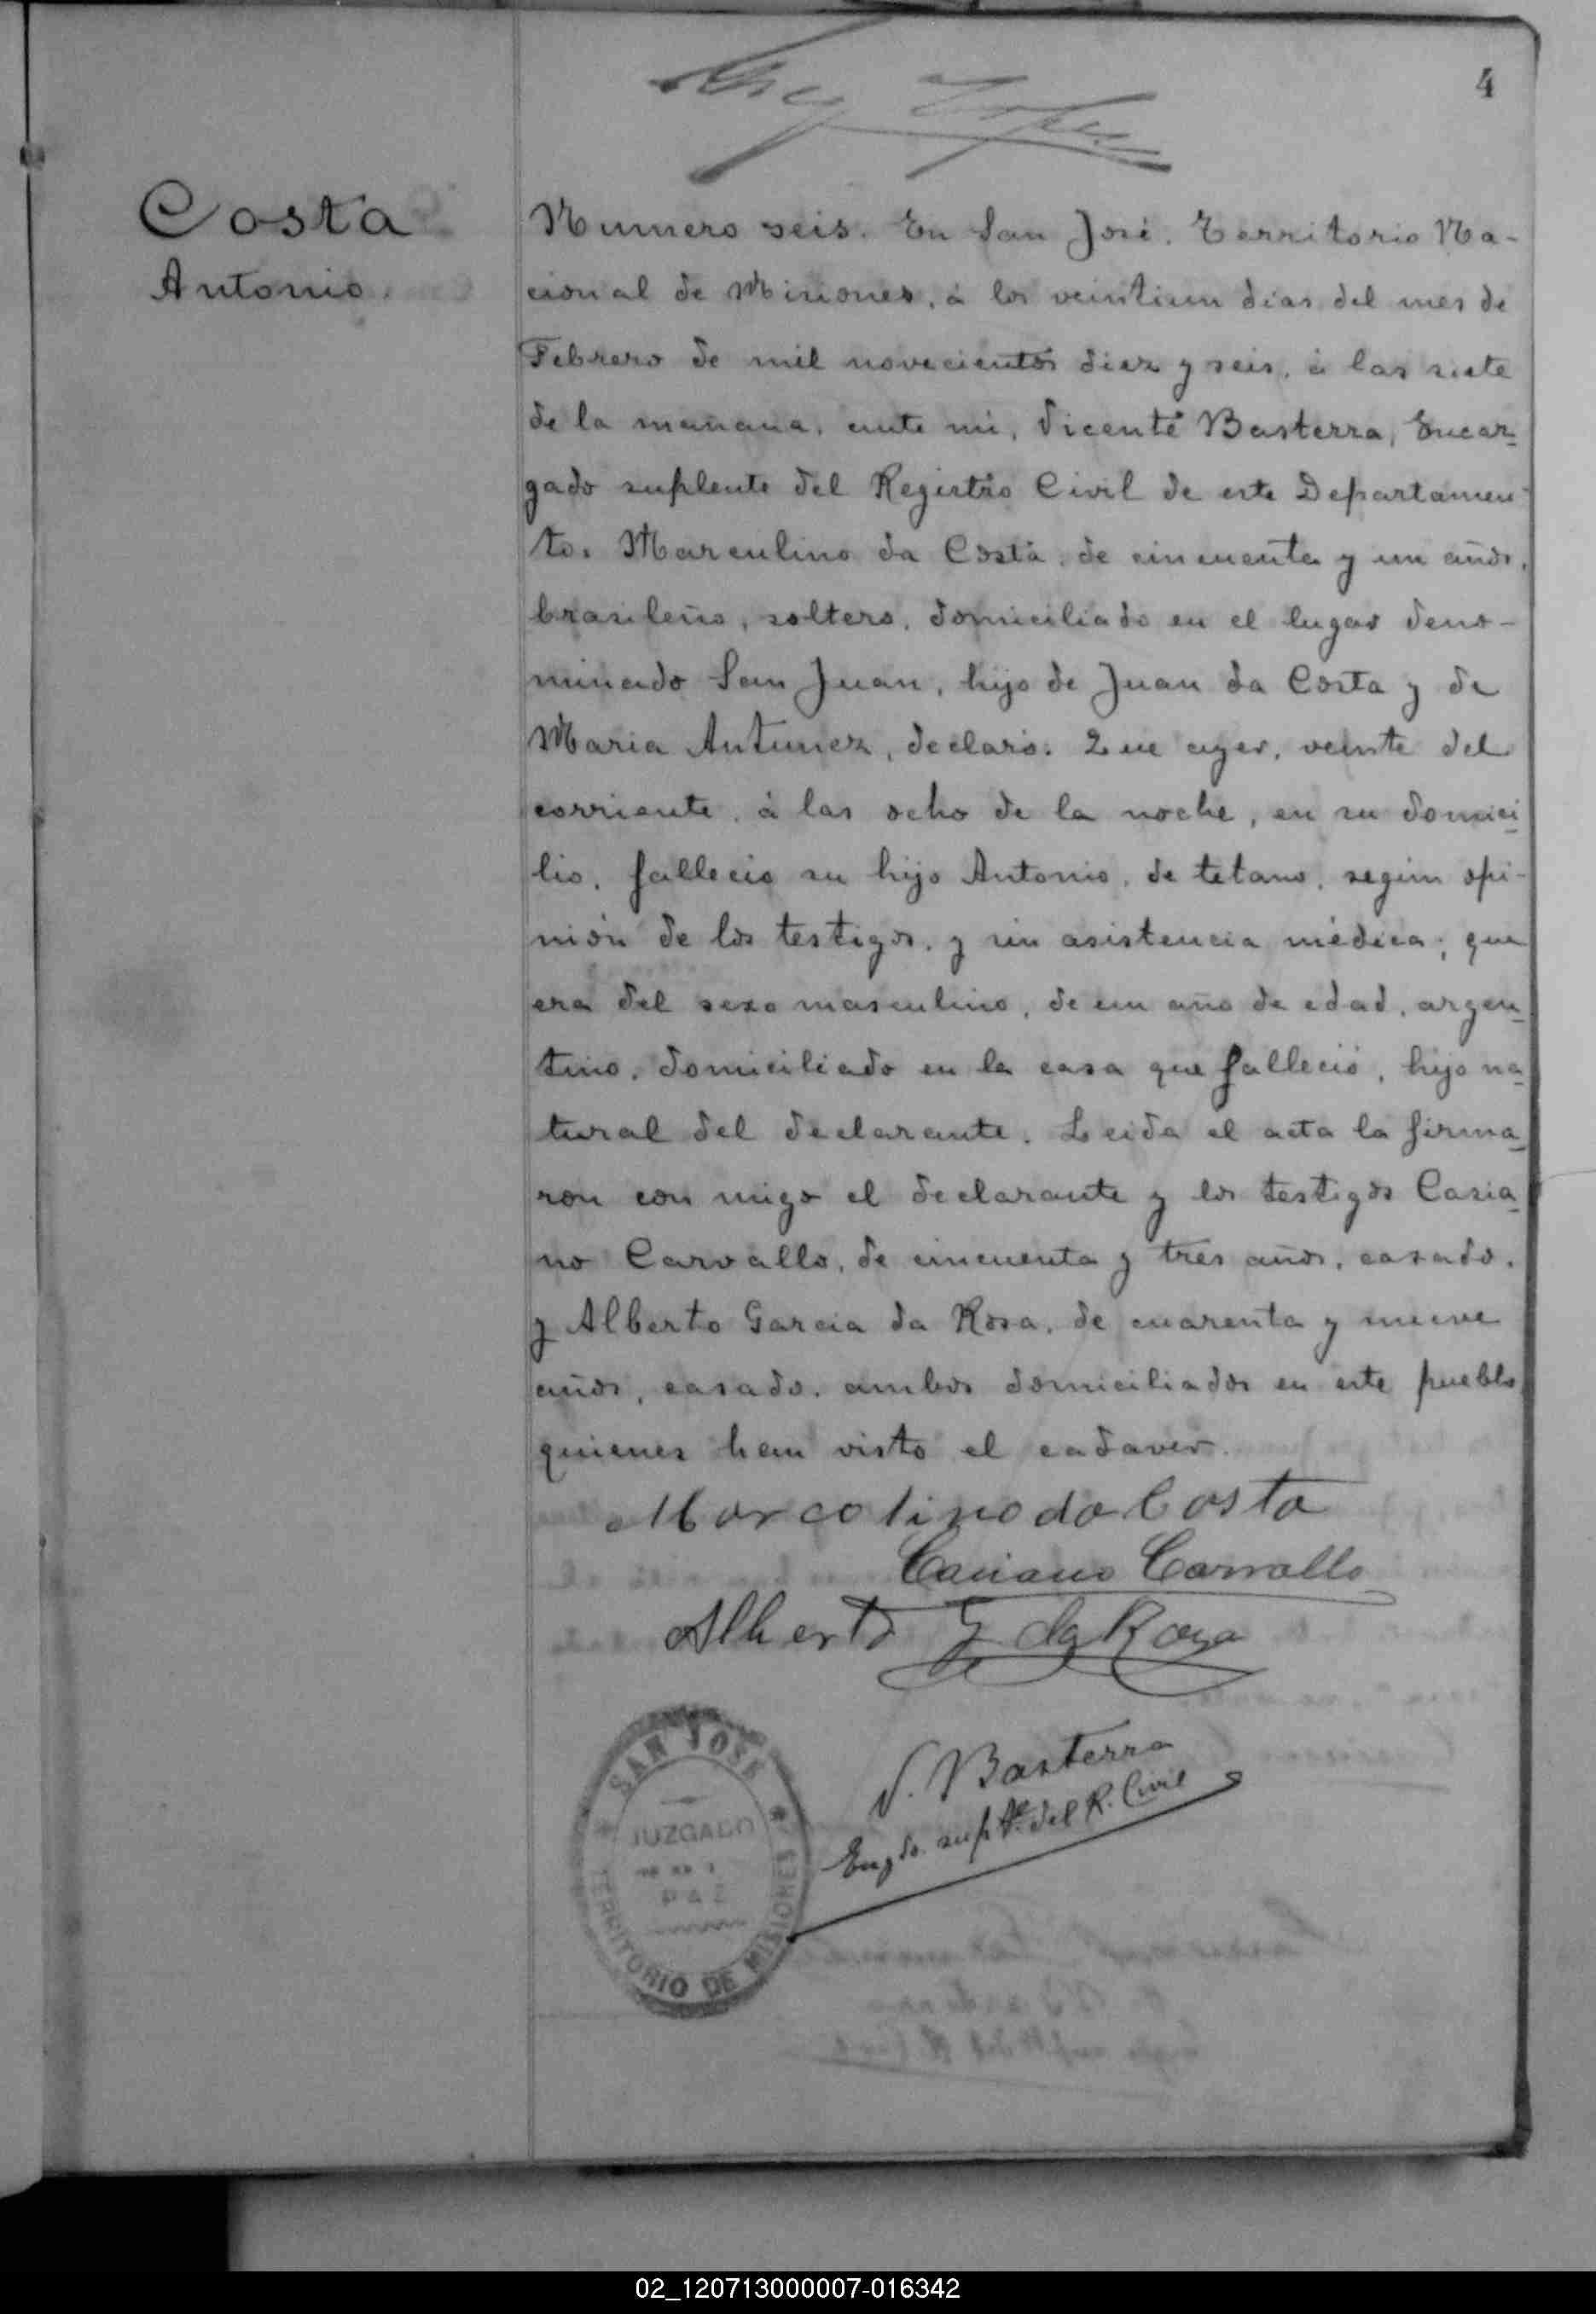 4
Costa
Antonio.
Numero seis. En San José. Territorio Na-
cional de Misiones, á los veintiun dias del mes de
Febrero de mil novecientos diez y seis, á las siete
de la mañana, ante mi, Vicente Basterra, Encar-
gado suplente del Registro Civil de este Departamen-
to. Marculino da Costa, de cincuenta y un años,
brasileño, soltero, domiciliado en el lugar deno-
minado San Juan, hijo de Juan da Costa y de
Maria Antunez, declaró: Que ayer, veinte del
corriente, á las ocho de la noche, en su domici-
lio, fallecio su hijo Antonio, de tetano, segun opi-
nión de los testigos, y sin asistencia médica; que
era del sexo masculino, de un año de edad, argen-
tino, domiciliado en la casa que falleció, hijo na-
tural del declarante. Leida el acta la firma-
ron con migo el declarante y los testigos Casia-
no Carvallo, de cincuenta y tres años, casado,
y Alberto Garcia da Rosa, de cuarenta y nueve
años, casado, ambos domiciliados en este pueblo
quienes han visto el cadaver.
Marcolino da Costa
Casiano Carvallo
Alberto G da Roza
V. Basterra
Engdo. supte. del R. Civil
SAN JOSE
JUZGADO
PAZ
TERRITORIO DE MISIONES
02_120713000007-016342